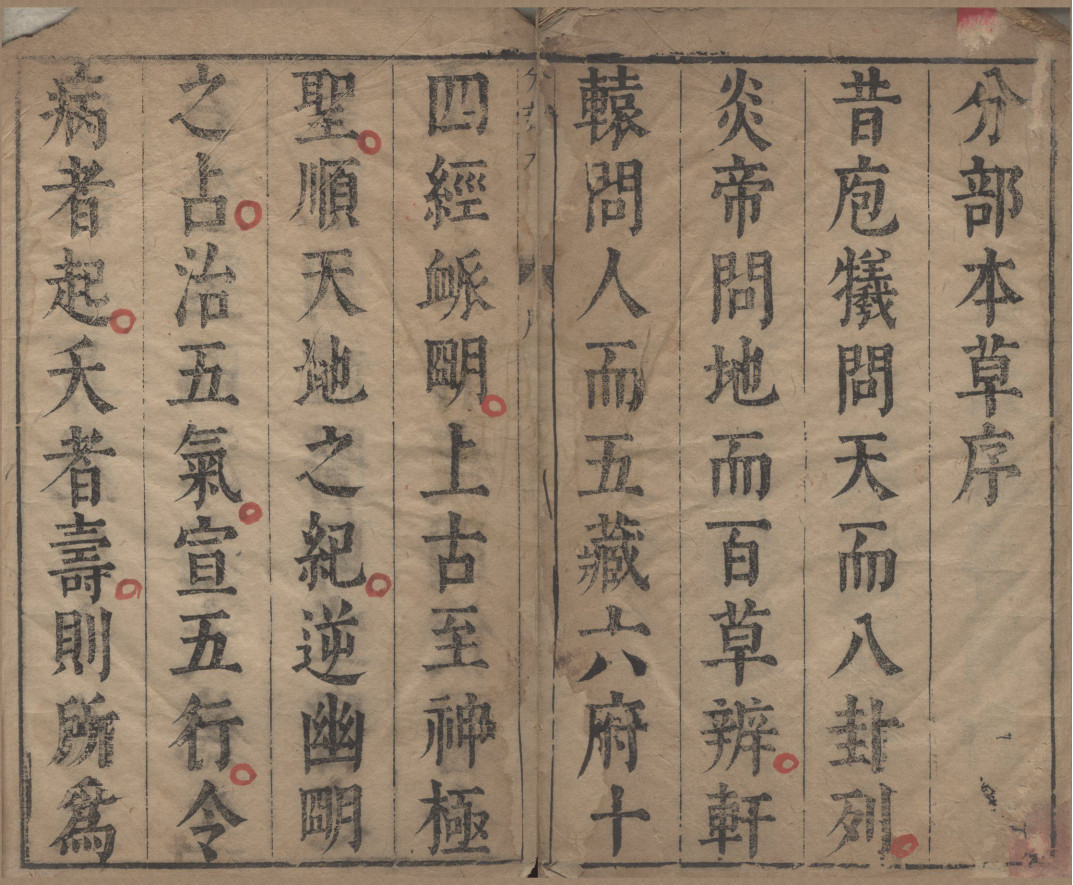 分部本草序
昔庖犧問天而八卦列
炎帝問地而百草辨軒
轅問人而五藏六府十
四經衇朙上古至神極
聖順天地之紀逆幽朙
之占治五氣宣五行令
病者起夭者壽則所爲